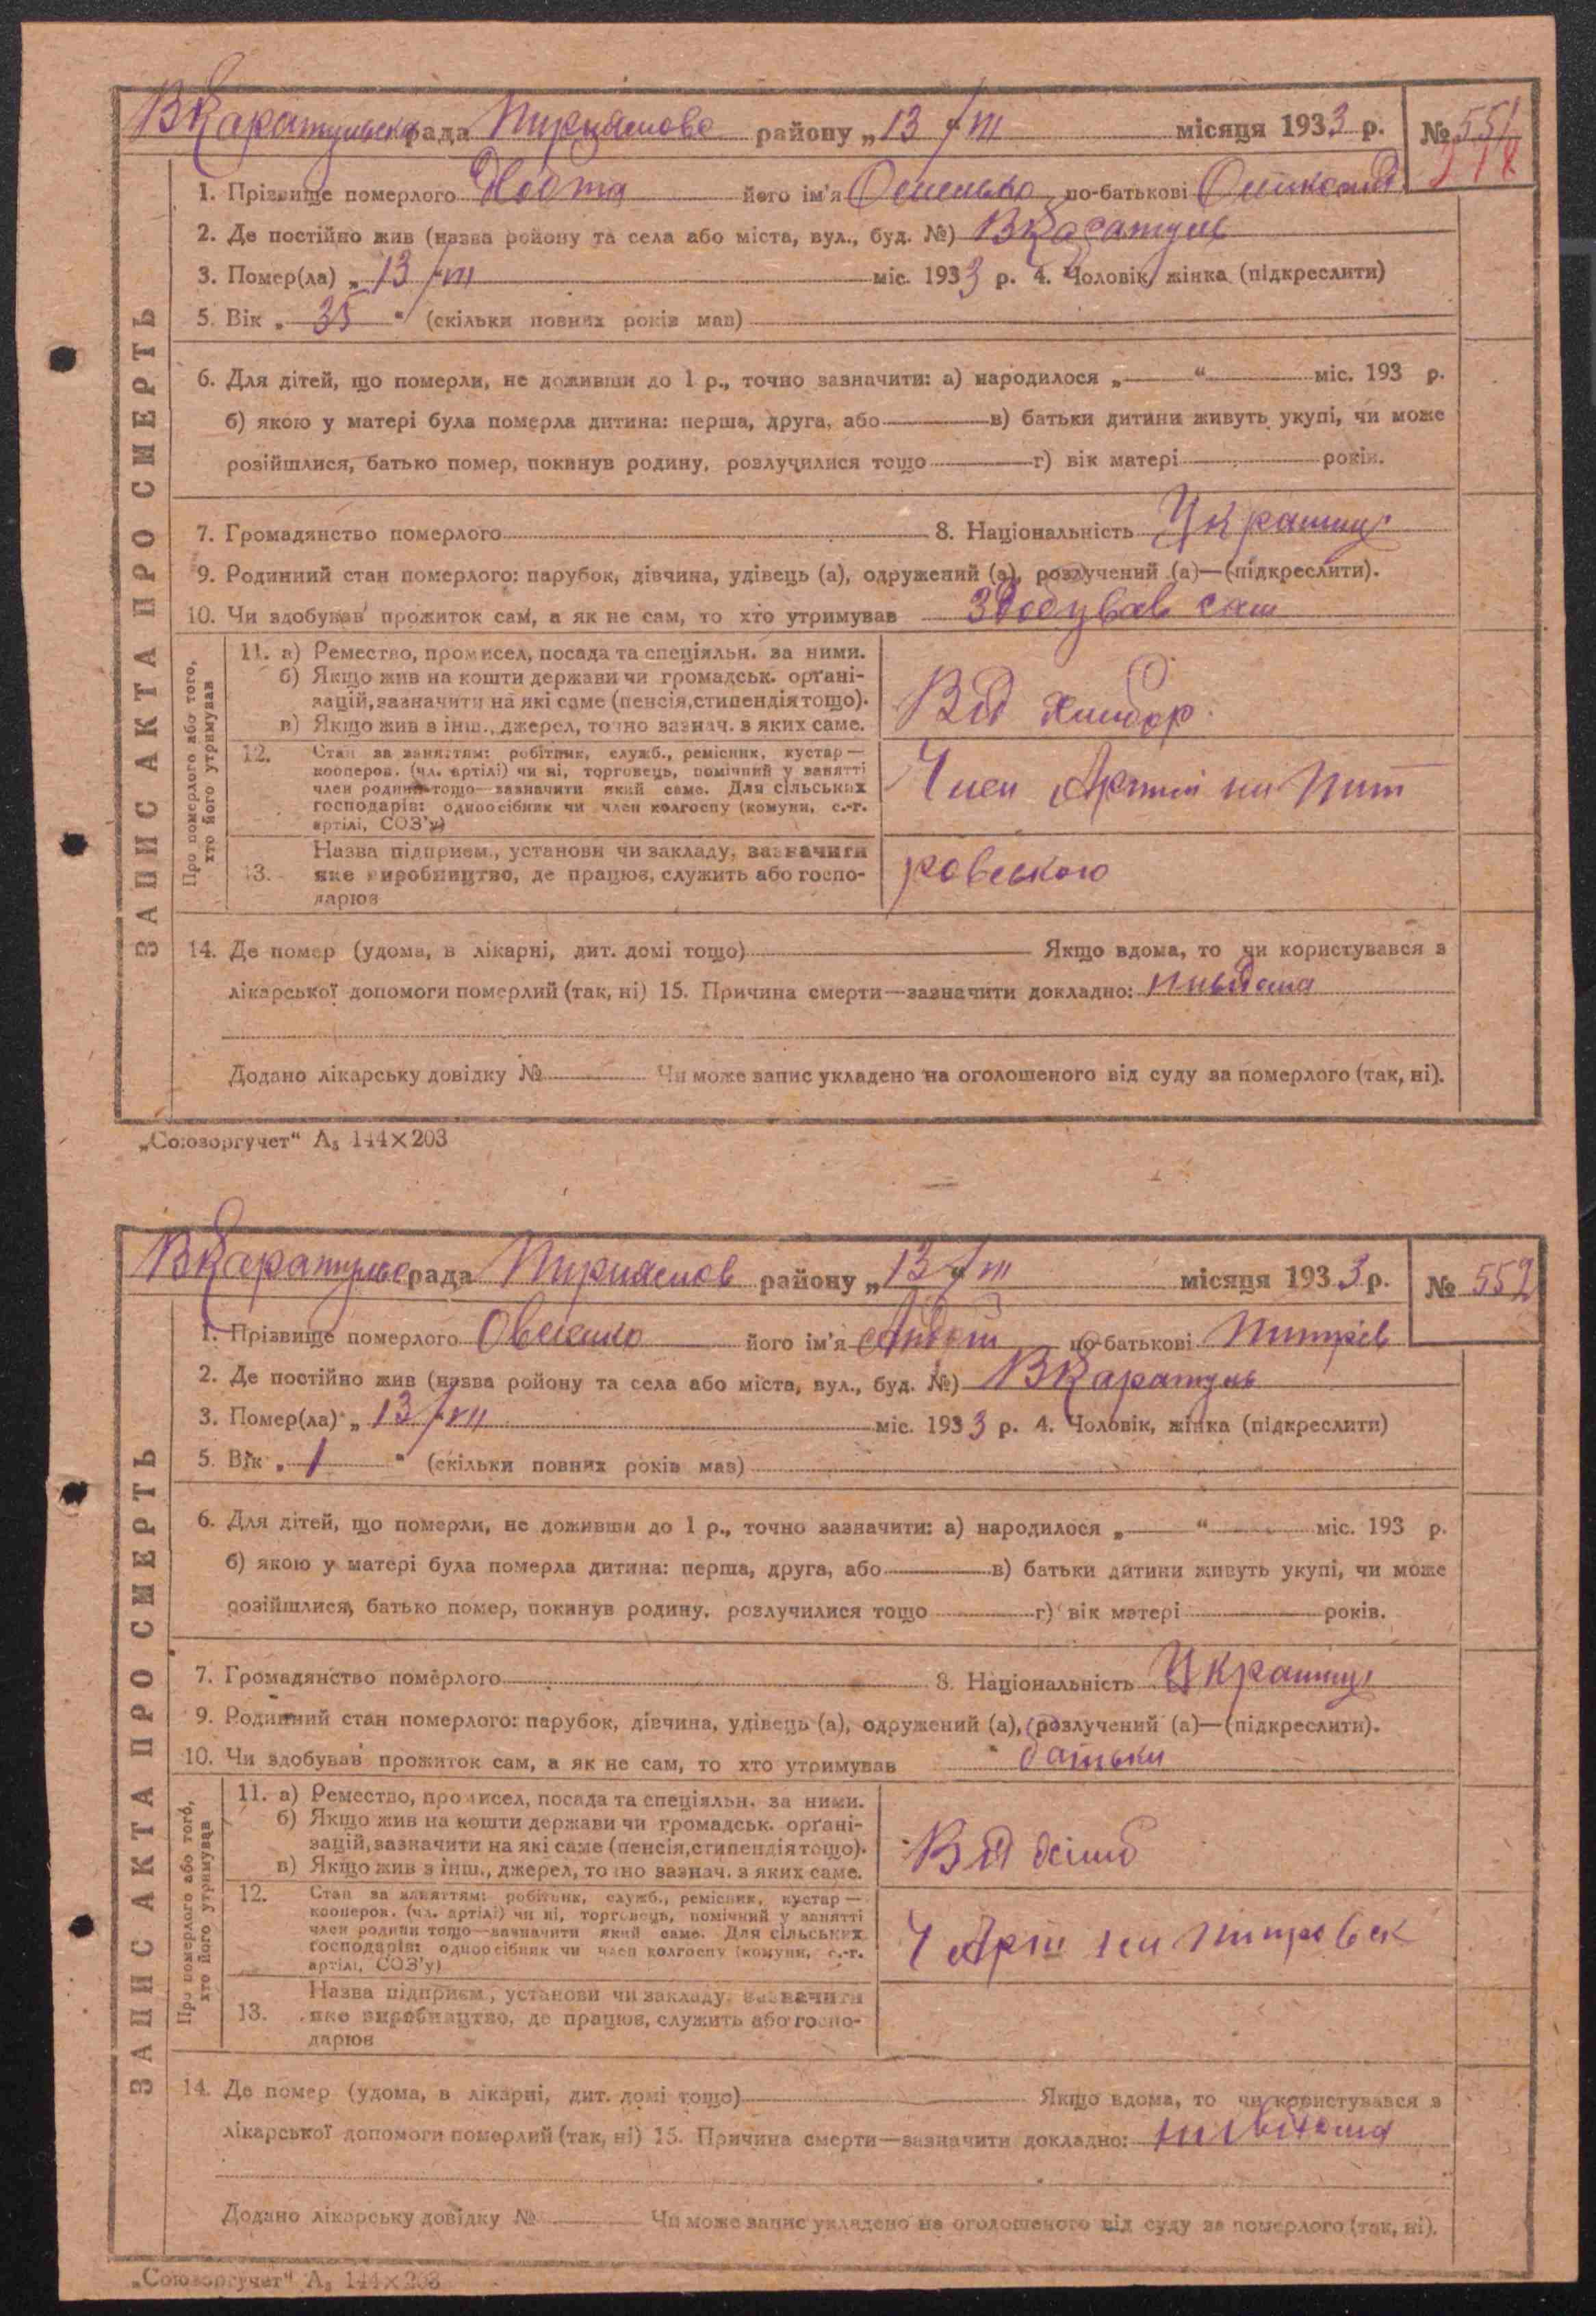 ВКаратульска рада Пирятово району „13/VII місяця 1933 р. № 551
1. Прізвище померлого його ім'я по-батькові
2. Де постійно жив (назва ройону та села або міста, вул., буд. №) ВКаратуль
3. Помер(ла) „13/VII міс. 1933 р. 4. Чоловік, жінка (підкреслити)
5. Вік „35" (скільки повних років мав)
6. Для дітей, що померли, не доживши до 1 р., точно зазначити: а) народилося „ " міс. 193 р.
б) якою у матері була померла дитина: перша, друга, або в) батьки дитини живуть укупі, чи може
розійшлися, батько помер, покинув родину, розлучилися тощо г) вік матері років.
7. Громадянство померлого 8. Національність Украинц
9. Родинний стан померлого: парубок, дівчина, удівець (а), одружений (а), розлучений (а)—(підкреслити).
10. Чи здобував прожиток сам, а як не сам, то хто утримував Здобував сам
11. а) Ремество, промисел, посада та спеціяльн. за ними.
б) Якщо жив на кошти держави чи громадськ. орґані-
зацій, зазначити на які саме (пенсія, стипендія тощо).
в) Якщо жив з інш., джерел, точно зазнач. з яких саме.
Від хлибор
12. Стан за заняттям: робітник, служб., ремісник, кустар—
кооперов. (чл. артілі) чи ні, торговець, помічний у занятті
член родини тощо—зазначити який саме. Для сільських
господарів: одноосібник чи член колгоспу (комуни, с.-г.
артілі, СОЗ'у)
Член Артілі им Пит
13. Назва підприєм., установи чи закладу, зазначити
яке виробництво, де працює, служить або госпо-
дарює
ровського
14. Де помер (удома, в лікарні, дит. домі тощо) Якщо вдома, то чи користувався з
лікарської допомоги померлий (так, ні) 15. Причина смерти—зазначити докладно:
Додано лікарську довідку № Чи може запис укладено на оголошеного від суду за померлого (так, ні).
ЗАПИС АКТА ПРО СМЕРТЬ
Про померлого або того,
хто його утримував
„Союзоргучет" А₅ 144×203
ВКаратульс рада району „13/VII місяця 1933 р. № 552
1. Прізвище померлого Овсієнко його ім'я по-батькові
2. Де постійно жив (назва ройону та села або міста, вул., буд. №) ВКаратуль
3. Помер(ла) „13/VII міс. 1933 р. 4. Чоловік, жінка (підкреслити)
5. Вік „1" (скільки повних років мав)
6. Для дітей, що померли, не доживши до 1 р., точно зазначити: а) народилося „ " міс. 193 р.
б) якою у матері була померла дитина: перша, друга, або в) батьки дитини живуть укупі, чи може
розійшлися, батько помер, покинув родину, розлучилися тощо г) вік матері років.
7. Громадянство померлого 8. Національність Украинц
9. Родинний стан померлого: парубок, дівчина, удівець (а), одружений (а), розлучений (а)—(підкреслити).
10. Чи здобував прожиток сам, а як не сам, то хто утримував батьки
11. а) Ремество, промисел, посада та спеціяльн. за ними.
б) Якщо жив на кошти держави чи громадськ. орґані-
зацій, зазначити на які саме (пенсія, стипендія тощо).
в) Якщо жив з інш., джерел, точно зазнач. з яких саме.
Від
12. Стан за заняттям: робітник, служб., ремісник, кустар—
кооперов. (чл. артілі) чи ні, торговець, помічний у занятті
член родини тощо—зазначити який саме. Для сільських
господарів: одноосібник чи член колгоспу (комуни, с.-г.
артілі, СОЗ'у)
Ч Арт им Питровськ
13. Назва підприєм., установи чи закладу, зазначити
яке виробництво, де працює, служить або госпо-
дарює
14. Де помер (удома, в лікарні, дит. домі тощо) Якщо вдома, то чи користувався з
лікарської допомоги померлий (так, ні) 15. Причина смерти—зазначити докладно:
Додано лікарську довідку № Чи може запис укладено на оголошеного від суду за померлого (так, ні).
ЗАПИС АКТА ПРО СМЕРТЬ
Про померлого або того,
хто його утримував
„Союзоргучет" А₅ 144×203